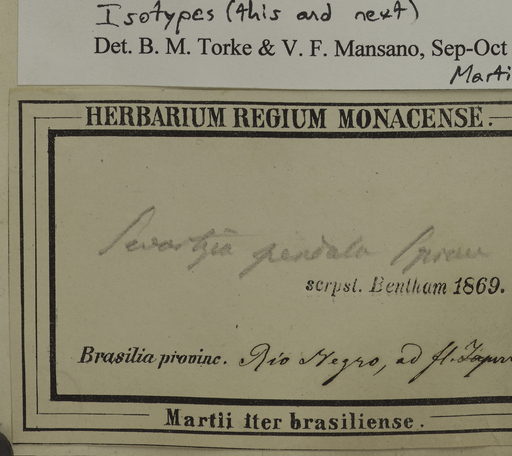 Isotypes (this and next)
Det. B. M. Torke & V. F. Mansano, Sep-Oct
Marti
HERBARIUM REGIUM MONACENSE.
Swartzia pendula Spruce
scrpst. Bentham 1869.
Brasilia provinc. Rio Negro, ad fl. Japur
Martii iter brasiliense.